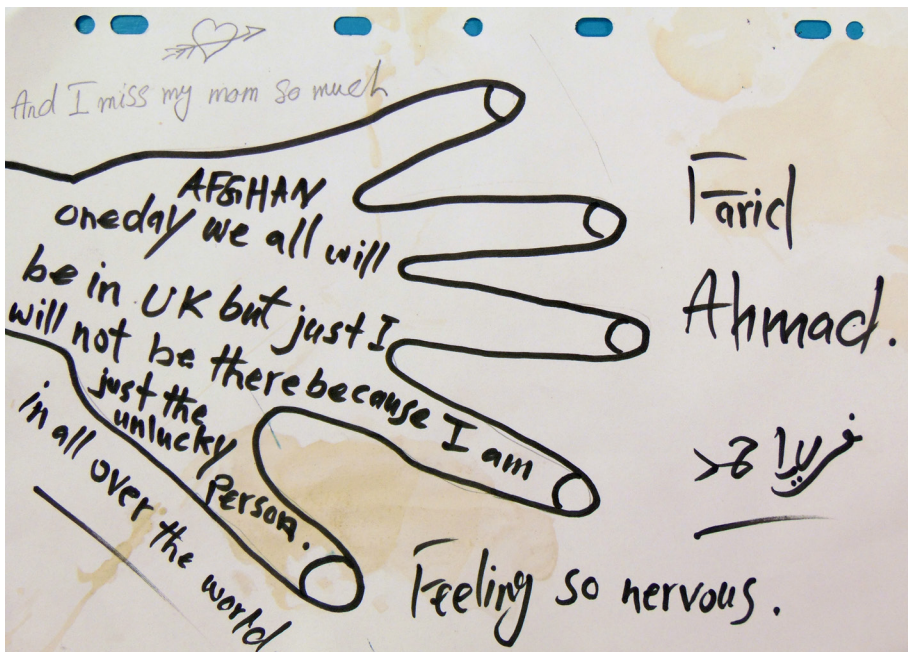 And I miss my mom so much
AFGHAN
oneday we all will
be in UK but just I
will not be there because I am
just the
unlucky
Person.
in all over the world
Farid
Ahmad.
فرید احمد
Feeling so nervous.